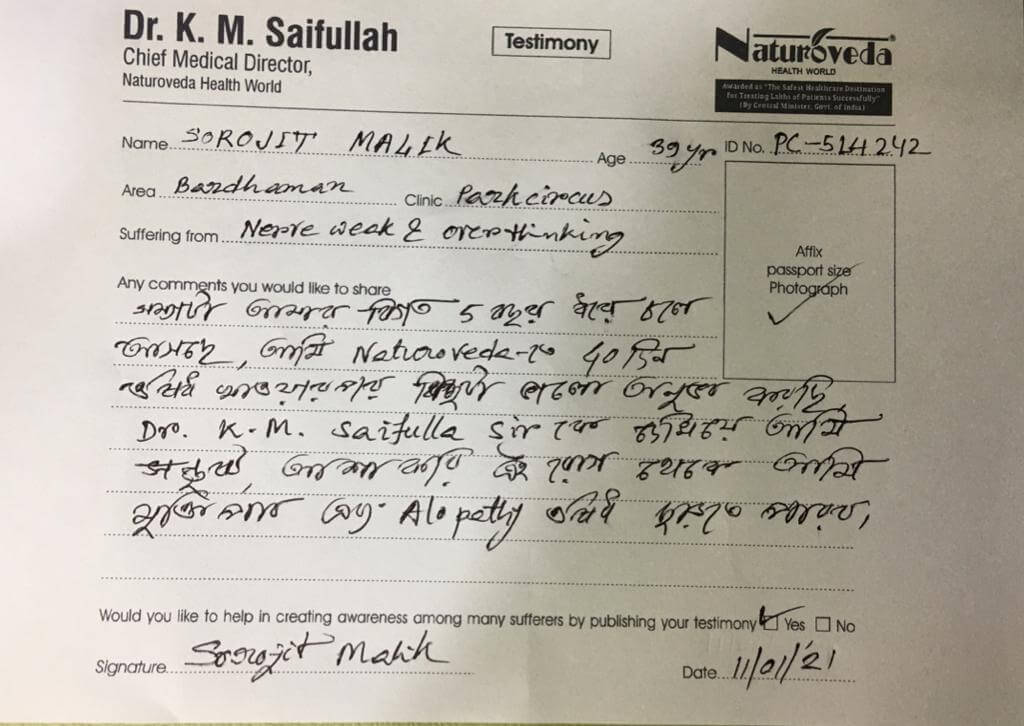 Dr. K. M. Saifullah
Chief Medical Director,
Naturoveda Health World
Testimony
Naturoveda
HEALTH WORLD
Awarded as "The Safest Healthcare Destination
for Treating Lakhs of Patients Successfully"
(By Central Minister, Govt. of India)
Name SOROJIT MALIK Age 39 yr ID No. PC-514242
Area Bardhaman Clinic Parkcircus
Suffering from Nerve weak & overthinking
Affix
passport size
Photograph
Any comments you would like to share
আমার বিগত 5 বছর ধরে চলে
আসছে, আমি Naturoveda-তে 40 দিন
ঔষধ খাওয়ার পর কিছুটা ভালো অনুভব করছি
Dr. K.M. Saifulla Sir কে দেখিয়ে আমি
সন্তুষ্ট, আশা করি এই রোগ থেকে আমি
মুক্তি পাব এবং Alopathy ঔষধ ছাড়তে পারব,
Would you like to help in creating awareness among many sufferers by publishing your testimony Yes No
Signature Sorojit Malik Date 11/01/'21